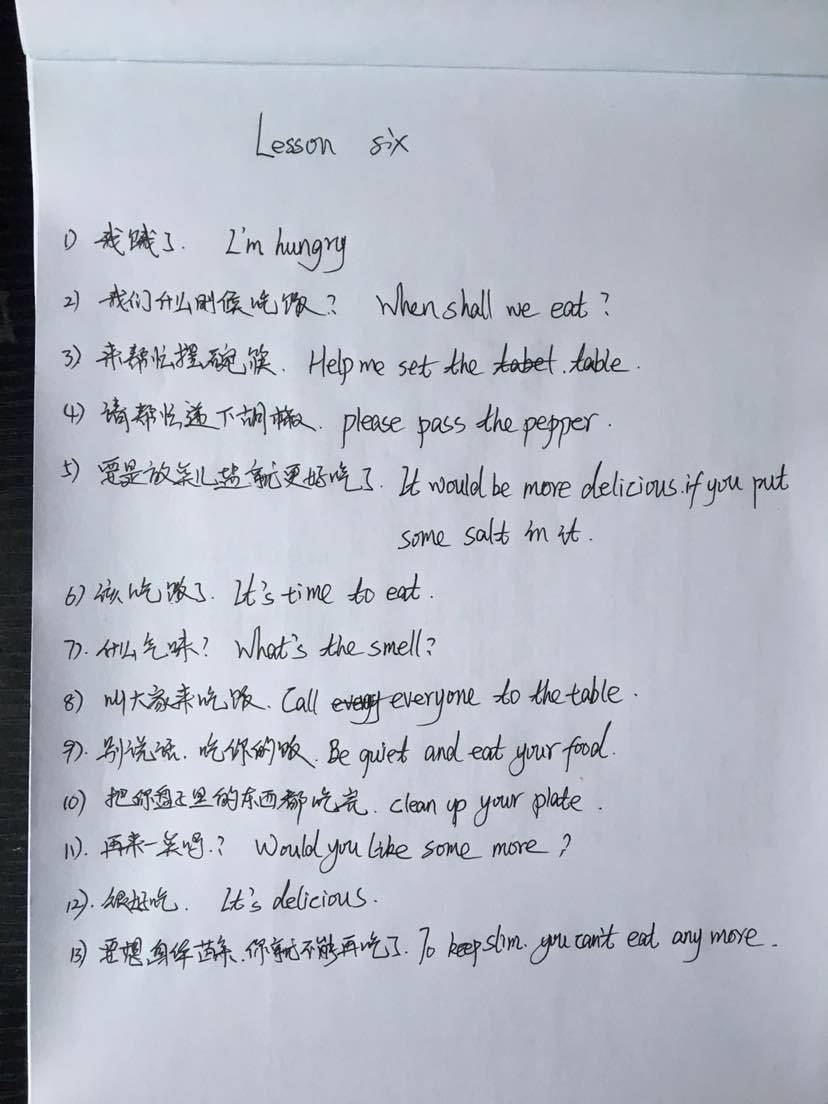 Lesson six
1) 我饿了. I'm hungry
2) 我们什么时候吃饭? When shall we eat?
3) 来帮忙摆碗筷. Help me set the tabet. table.
4) 请帮忙递下胡椒. please pass the pepper.
5) 要是放点儿盐就更好吃了. It would be more delicious. if you put
some salt in it.
6) 该吃饭了. It's time to eat.
7). 什么气味? What's the smell?
8) 叫大家来吃饭. Call everyone to the table.
9). 别说话. 吃你的饭. Be quiet and eat your food.
10) 把你盘子里的东西都吃完. clean up your plate.
11). 再来一点吗.? Would you like some more?
12). 很好吃. It's delicious.
13) 要想身体苗条. 你就不能再吃了. To keep slim. you can't eat any more.